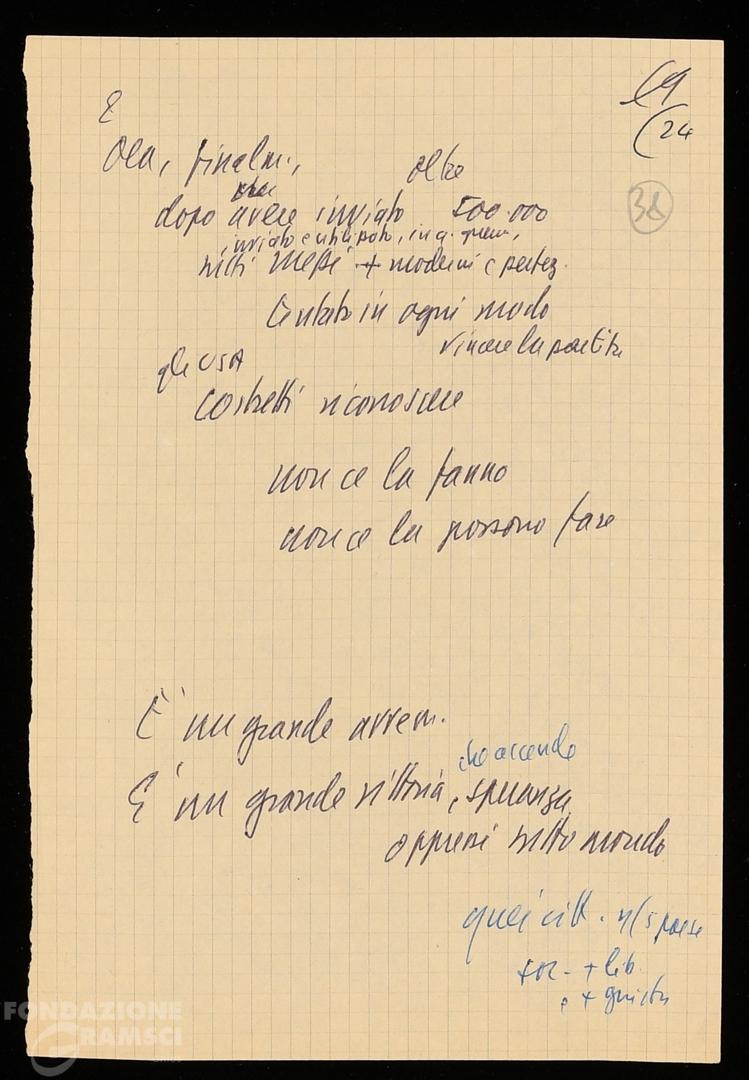 E
(24
38
Ora, finalm.,
oltre
dopo avere inviato 500.000
inviato e utilizzato, in q. guerra,
tutti mezzi + moderni e perfez.
tentato in ogni modo
vincere la partita
gli USA
costretti riconoscere
non ce la fanno
non ce la possono fare
E' un grande avven.
che accende
E' un grande vittoria, speranza
oppressi tutto mondo
quei citt. n/s paese
soc. + lib.
e + giusta
FONDAZIONE
GRAMSCI